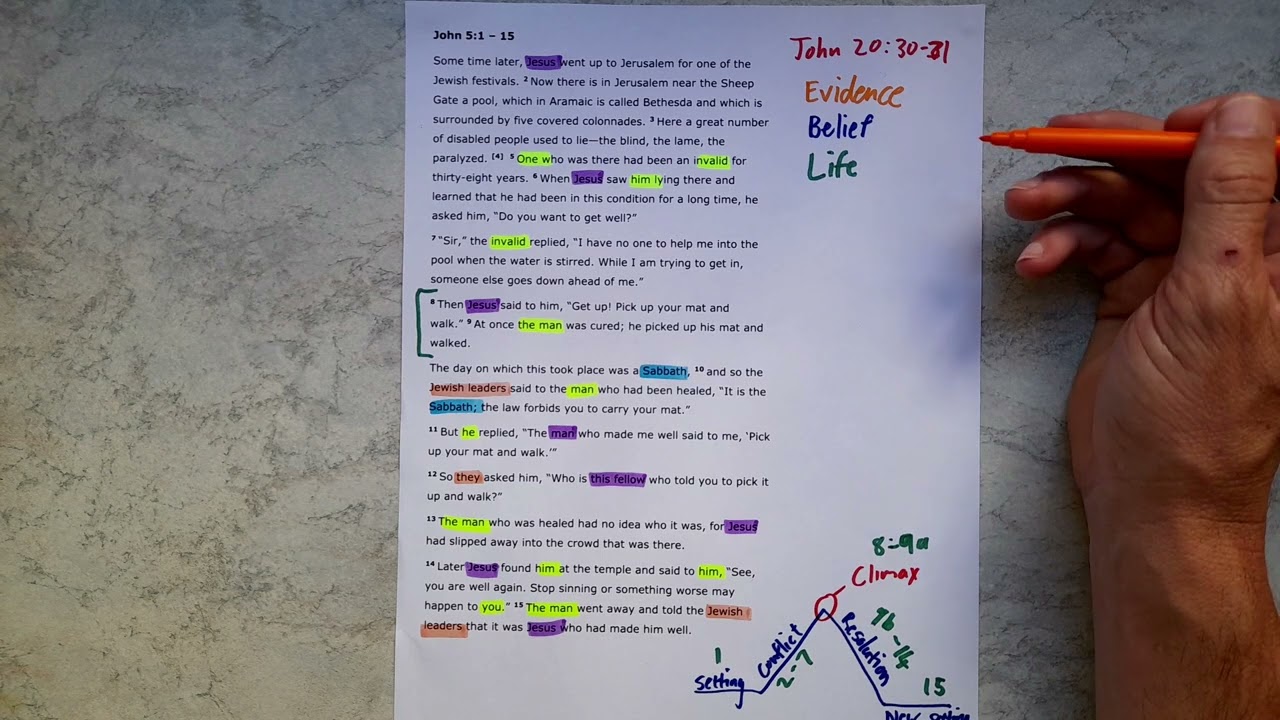 John 5:1 – 15
Some time later, Jesus went up to Jerusalem for one of the
Jewish festivals. 2 Now there is in Jerusalem near the Sheep
Gate a pool, which in Aramaic is called Bethesda and which is
surrounded by five covered colonnades. 3 Here a great number
of disabled people used to lie—the blind, the lame, the
paralyzed. [4] 5 One who was there had been an invalid for
thirty-eight years. 6 When Jesus saw him lying there and
learned that he had been in this condition for a long time, he
asked him, “Do you want to get well?”
7 “Sir,” the invalid replied, “I have no one to help me into the
pool when the water is stirred. While I am trying to get in,
someone else goes down ahead of me.”
8 Then Jesus said to him, “Get up! Pick up your mat and
walk.” 9 At once the man was cured; he picked up his mat and
walked.
The day on which this took place was a Sabbath, 10 and so the
Jewish leaders said to the man who had been healed, “It is the
Sabbath; the law forbids you to carry your mat.”
11 But he replied, “The man who made me well said to me, ‘Pick
up your mat and walk.’”
12 So they asked him, “Who is this fellow who told you to pick it
up and walk?”
13 The man who was healed had no idea who it was, for Jesus
had slipped away into the crowd that was there.
14 Later Jesus found him at the temple and said to him, “See,
you are well again. Stop sinning or something worse may
happen to you.” 15 The man went away and told the Jewish
leaders that it was Jesus who had made him well.
John 20:30-31
Evidence
Belief
Life
8-9a
Climax
Conflict
2-7
Resolution
9b-14
1
Setting
15
New setting